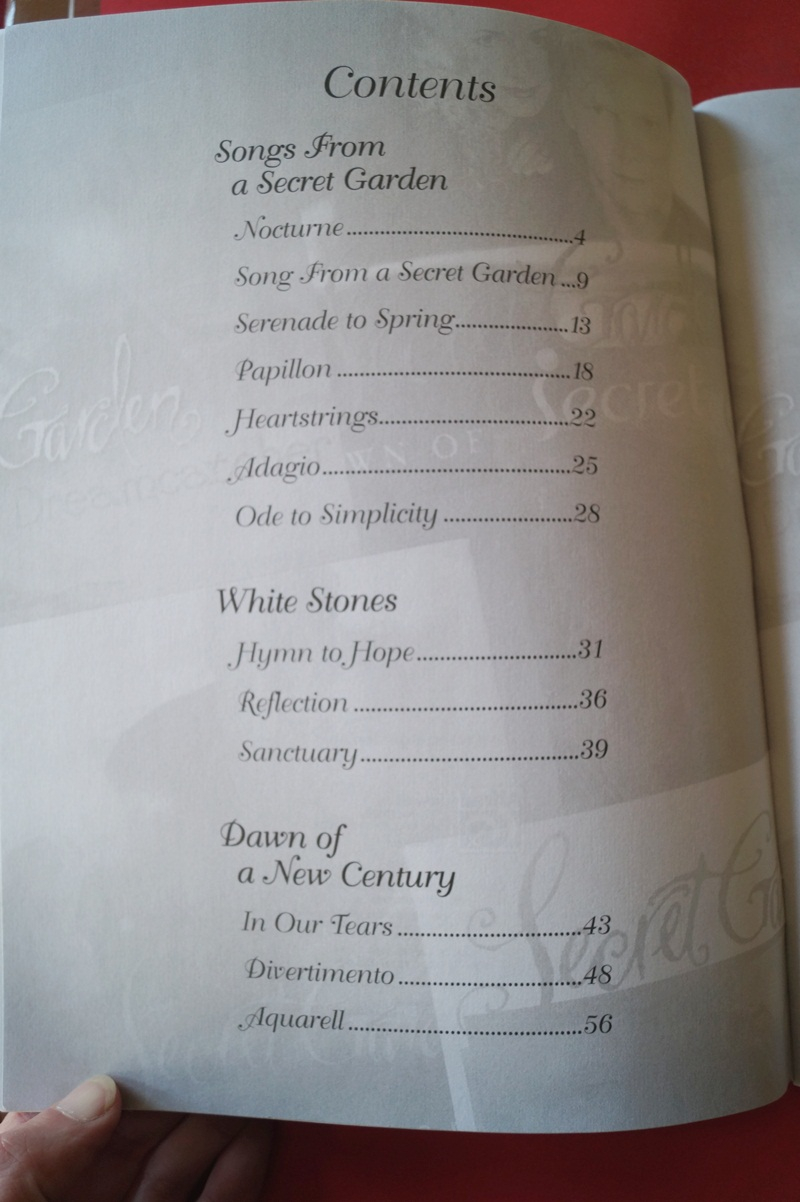 Contents
Songs From
a Secret Garden
Nocturne..........................................4
Song From a Secret Garden...9
Serenade to Spring....................13
Papillon..........................................18
Heartstrings..................................22
Adagio............................................25
Ode to Simplicity.......................28
White Stones
Hymn to Hope............................31
Reflection.......................................36
Sanctuary......................................39
Dawn of
a New Century
In Our Tears................................43
Divertimento................................48
Aquarell.........................................56
Garden
Secret
WN OF
Secret